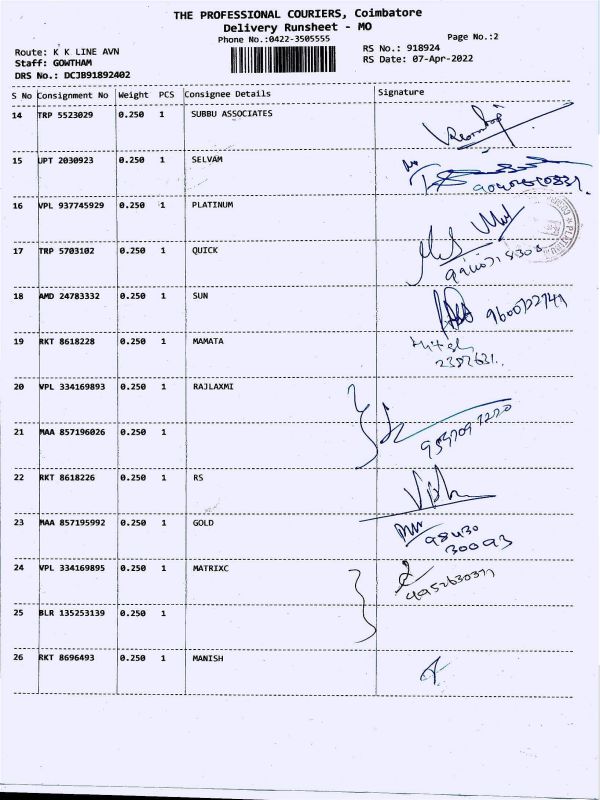 THE PROFESSIONAL COURIERS, Coimbatore
Delivery Runsheet - MO
Phone No.:0422-3505555
Page No.:2
Route: K K LINE AVN
RS No.: 918924
Staff: GOWTHAM
RS Date: 07-Apr-2022
DRS No.: DCJB91892402
S No Consignment No Weight PCS Consignee Details Signature
14 TRP 5523029 0.250 1 SUBBU ASSOCIATES
15 UPT 2030923 0.250 1 SELVAM
16 VPL 937745929 0.250 1 PLATINUM
17 TRP 5703102 0.250 1 QUICK
18 AMD 24783332 0.250 1 SUN
19 RKT 8618228 0.250 1 MAMATA
2387631.
20 VPL 334169893 0.250 1 RAJLAXMI
21 MAA 857196026 0.250 1
22 RKT 8618226 0.250 1 RS
23 MAA 857195992 0.250 1 GOLD
98430
30093
24 VPL 334169895 0.250 1 MATRIXC
25 BLR 135253139 0.250 1
26 RKT 8696493 0.250 1 MANISH